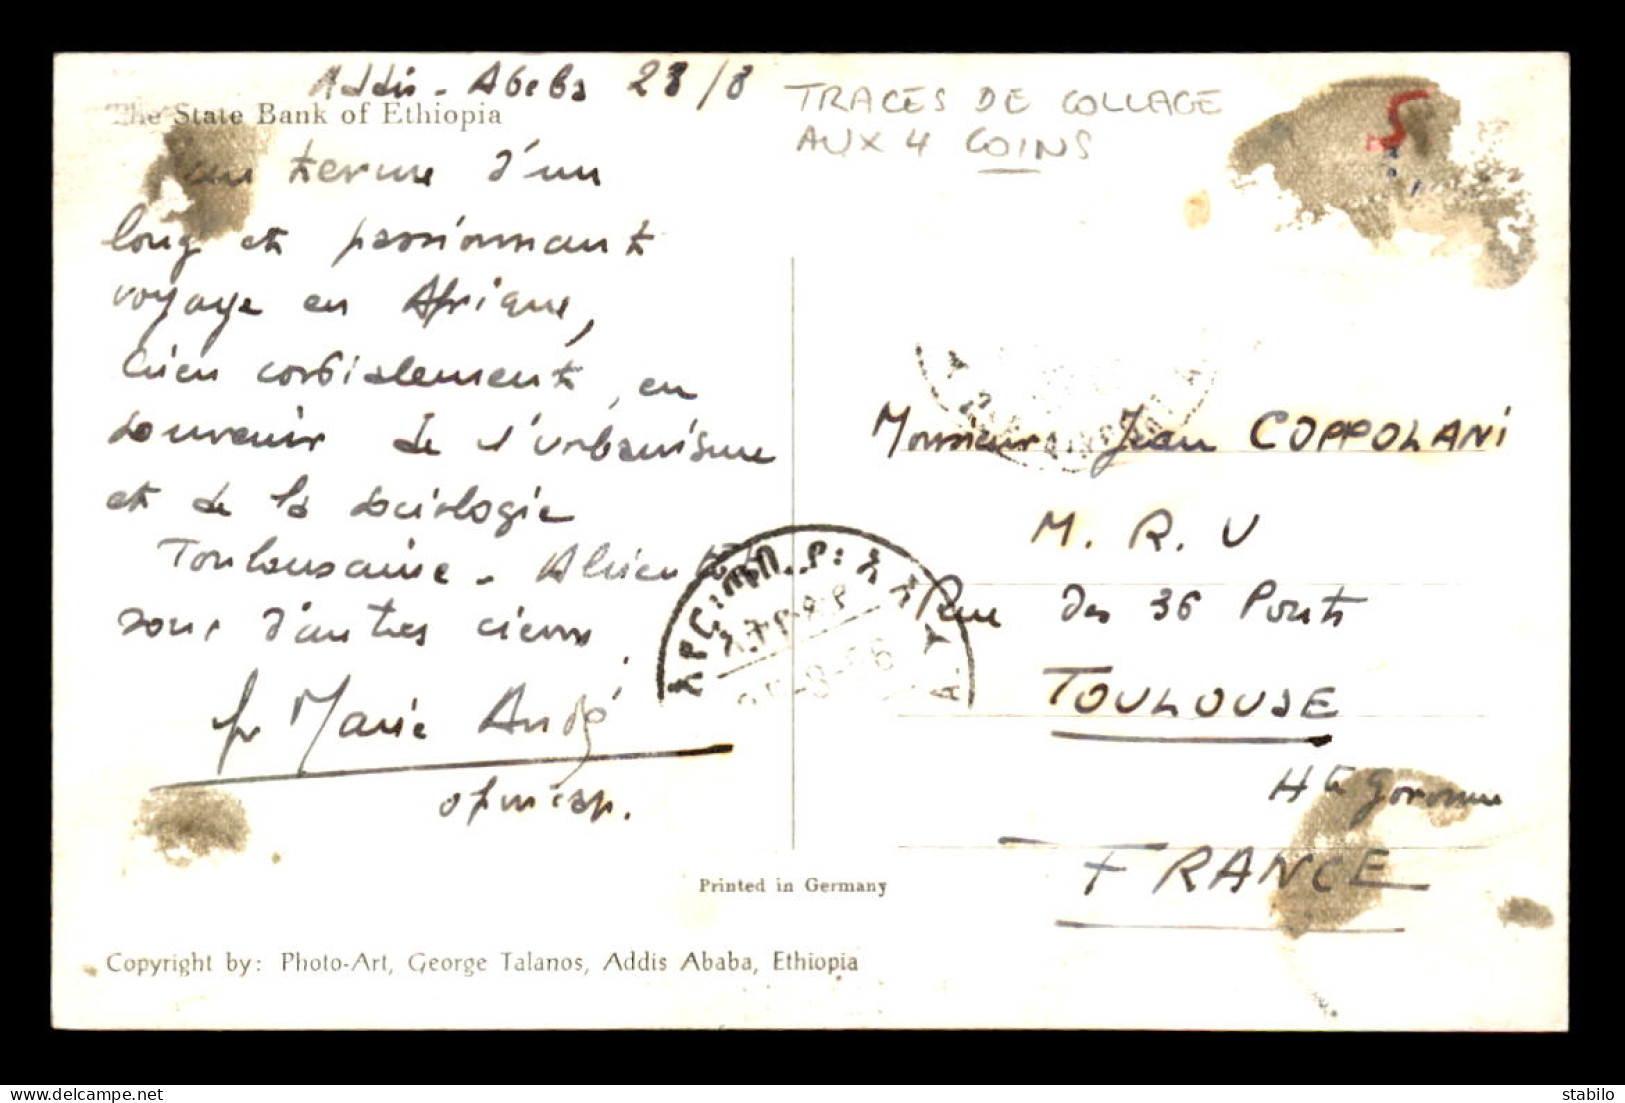 Addis-Abeba 28/8
The State Bank of Ethiopia
TRACES DE COLLAGE
AUX 4 COINS
5
au terme d'un
long et passionnant
voyage en Afrique,
bien cordialement, en
souvenir de l'urbanisme
et de la sociologie
Toulousaine -
sous d'autres cieux
fr Marie André
Monsieur Jean COPPOLANI
M. R. U
Rue des 36 Ponts
TOULOUSE
Hte Garonne
FRANCE
ኢትዮጵያ
Printed in Germany
Copyright by: Photo-Art, George Talanos, Addis Ababa, Ethiopia
stabilo - Delcampe.net